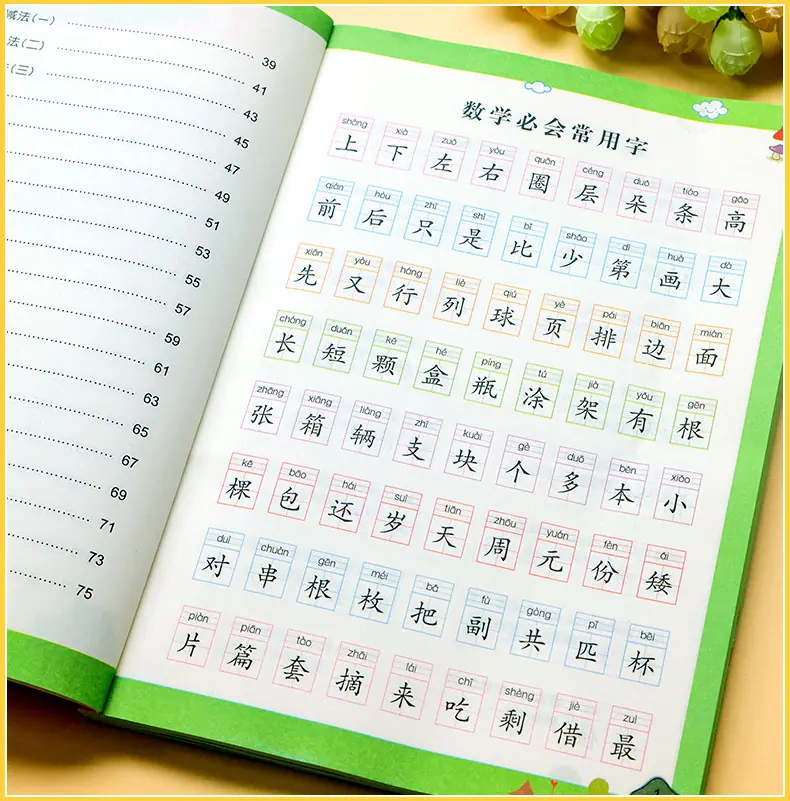 减法(一) 39
法(二) 41
(三) 43
45
47
49
51
53
55
57
59
61
63
65
67
69
71
73
75
数学必会常用字
shàng xià zuǒ yòu quān céng duǒ tiáo gāo
上 下 左 右 圈 层 朵 条 高
qián hòu zhǐ shì bǐ shǎo dì huà dà
前 后 只 是 比 少 第 画 大
xiān yòu háng liè qiú yè pái biān miàn
先 又 行 列 球 页 排 边 面
cháng duǎn kē hé píng tú jià yǒu gēn
长 短 颗 盒 瓶 涂 架 有 根
zhāng xiāng liàng zhī kuài gè duō běn xiǎo
张 箱 辆 支 块 个 多 本 小
kē bāo hái suì tiān zhōu yuán fèn ǎi
棵 包 还 岁 天 周 元 份 矮
duì chuàn gēn méi bǎ fù gòng pǐ bēi
对 串 根 枚 把 副 共 匹 杯
piàn piān tào zhāi lái chī shèng jiè zuì
片 篇 套 摘 来 吃 剩 借 最